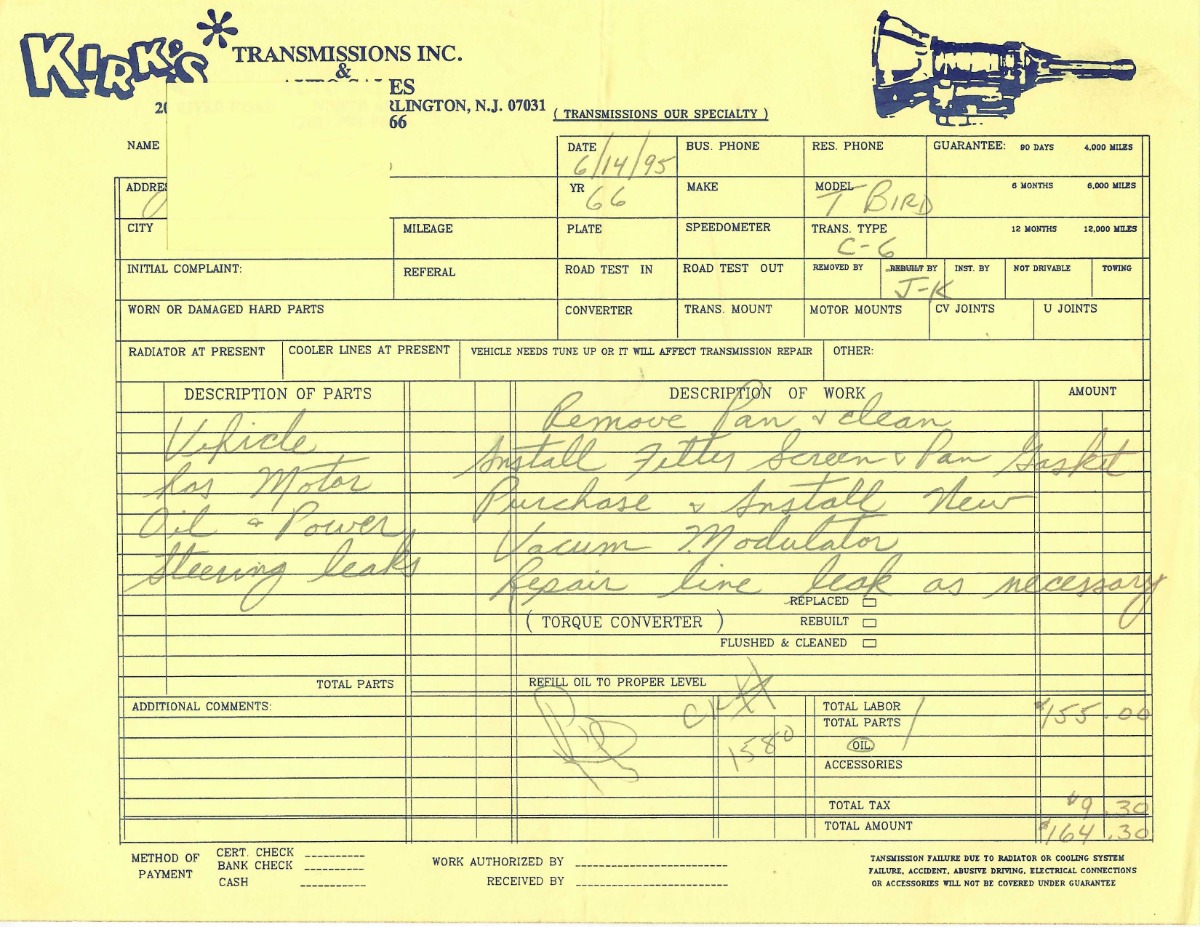 KIRK'S TRANSMISSIONS INC.
&
ES
20 RLINGTON, N.J. 07031
66
( TRANSMISSIONS OUR SPECIALTY )
NAME DATE 6/14/95 BUS. PHONE RES. PHONE GUARANTEE: 90 DAYS 4,000 MILES
ADDRE YR 66 MAKE MODEL T BIRD 6 MONTHS 6,000 MILES
CITY MILEAGE PLATE SPEEDOMETER TRANS. TYPE C-6 12 MONTHS 12,000 MILES
INITIAL COMPLAINT: REFERAL ROAD TEST IN ROAD TEST OUT REMOVED BY REBUILT BY J-K INST. BY NOT DRIVABLE TOWING
WORN OR DAMAGED HARD PARTS CONVERTER TRANS. MOUNT MOTOR MOUNTS CV JOINTS U JOINTS
RADIATOR AT PRESENT COOLER LINES AT PRESENT VEHICLE NEEDS TUNE UP OR IT WILL AFFECT TRANSMISSION REPAIR OTHER:
DESCRIPTION OF PARTS DESCRIPTION OF WORK AMOUNT
Remove Pan & clean
Vehicle Install Filter Screen & Pan Gasket
has Motor Purchase & Install New
Oil & Power Vacum Modulator
Steering leaks Repair line leak as necessary
REPLACED
( TORQUE CONVERTER ) REBUILT
FLUSHED & CLEANED
TOTAL PARTS REFILL OIL TO PROPER LEVEL
ADDITIONAL COMMENTS: Pd CK# TOTAL LABOR $155.00
1580 TOTAL PARTS
OIL
ACCESSORIES
TOTAL TAX $9.30
TOTAL AMOUNT $164.30
METHOD OF PAYMENT CERT. CHECK
BANK CHECK
CASH
WORK AUTHORIZED BY
RECEIVED BY
TANSMISSION FAILURE DUE TO RADIATOR OR COOLING SYSTEM
FAILURE, ACCIDENT, ABUSIVE DRIVING, ELECTRICAL CONNECTIONS
OR ACCESSORIES WILL NOT BE COVERED UNDER GUARANTEE